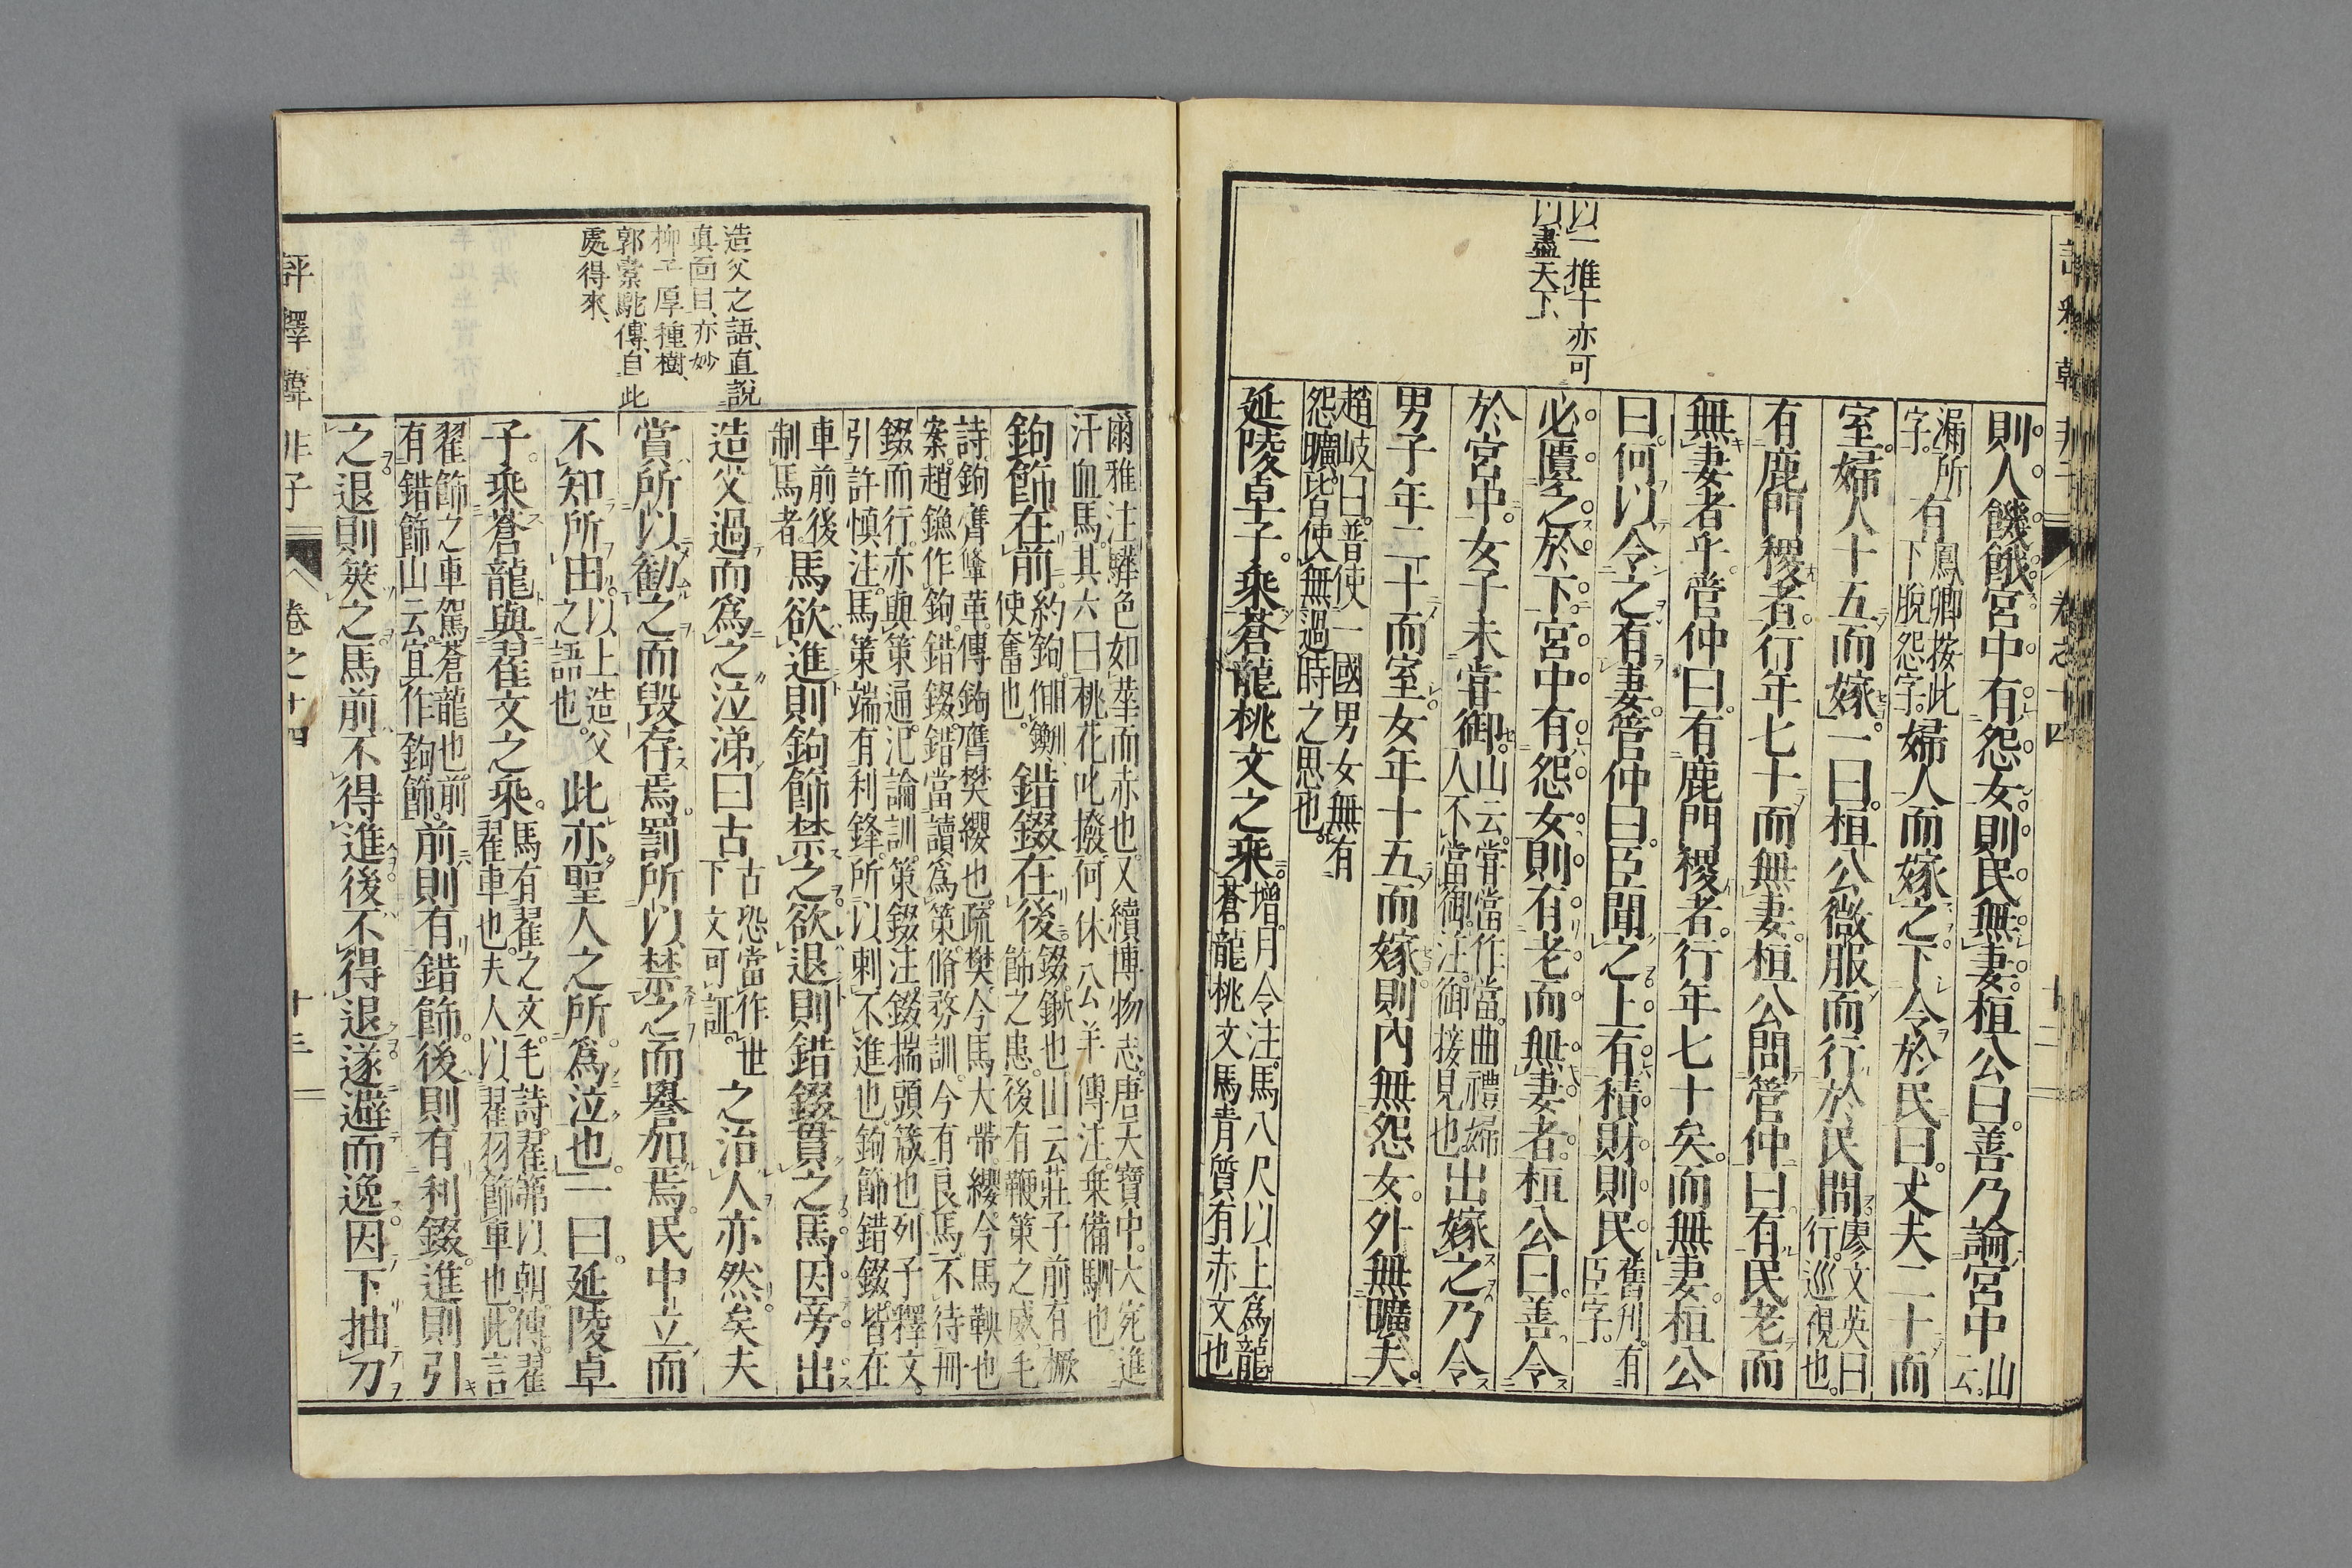 以一推十亦可
以盡天下、
則人饑餓宮中有怨女則民無妻桓公曰善乃論宮中山云
漏所有字鳳卿按此下脫怨字婦人而嫁之下令於民曰丈夫二十而
室婦人十五而嫁一曰桓公微服而行於民間廖文英曰行巡視也
有鹿門稷者行年七十而無妻桓公問管仲曰有民老而
無妻者乎管仲曰有鹿門稷者行年七十矣而無妻桓公
曰何以令之有妻管仲曰臣聞之上有積財則民舊刋有臣字
必匱乏於下宮中有怨女則有老而無妻者桓公曰善令
於宮中女子未甞御山云甞當作當曲禮婦人不當御注御接見也出嫁之乃令
男子年二十而室女年十五而嫁則內無怨女外無曠夫
趙岐曰普使一國男女無有怨曠皆使無過時之思也
延陵卓子乘蒼龍桃文之乘增月令注馬八尺以上爲龍蒼龍桃文馬青質有赤文也
評釋韓非子
卷之十四
十二
造父之語、直說
眞面目、亦妙
柳子厚種樹、
郭橐駝傳、自此
處得來、
爾雅注騂色如茥而赤也又續博物志唐天寶中大宛進
汗血馬其六曰桃花叱撥何休公羊傳注乗備駟也
鉤飾在前約鉤使奮也錯錣在後錣鍬也山云莊子前有橛飾之患後有鞭策之威毛
詩鉤膺鞗革傳鉤膺樊纓也疏樊今馬大帶纓今馬鞅也
案趙鐮作鉤錯錣錯當讀爲策脩務訓今有良馬不待冊
錣而行亦與策通氾論訓策錣注錣揣頭箴也列子釋文
引許慎注馬策端有利鋒所以刺不進也鉤飾錯錣皆在
車前後制馬者馬欲進則鉤飾禁之欲退則錯錣貫之馬因旁出
造父過而爲之泣涕曰古古恐當作世下文可証之治人亦然矣夫
賞所以勸之而毀存焉罰所以禁之而譽加焉民中立而
不知所由以上造父之語也此亦聖人之所爲泣也一曰延陵卓
子乘蒼龍與翟文之乘馬有翟之文毛詩翟茀以朝傳翟翟車也夫人以翟羽飾車也此言
翟飾之車駕蒼龍也前有錯飾山云宜作鉤飾前則有錯飾後則有利錣進則引
之退則筴之馬前不得進後不得退遂避而逸因下抽刀
評釋韓非子
卷之十四
十三